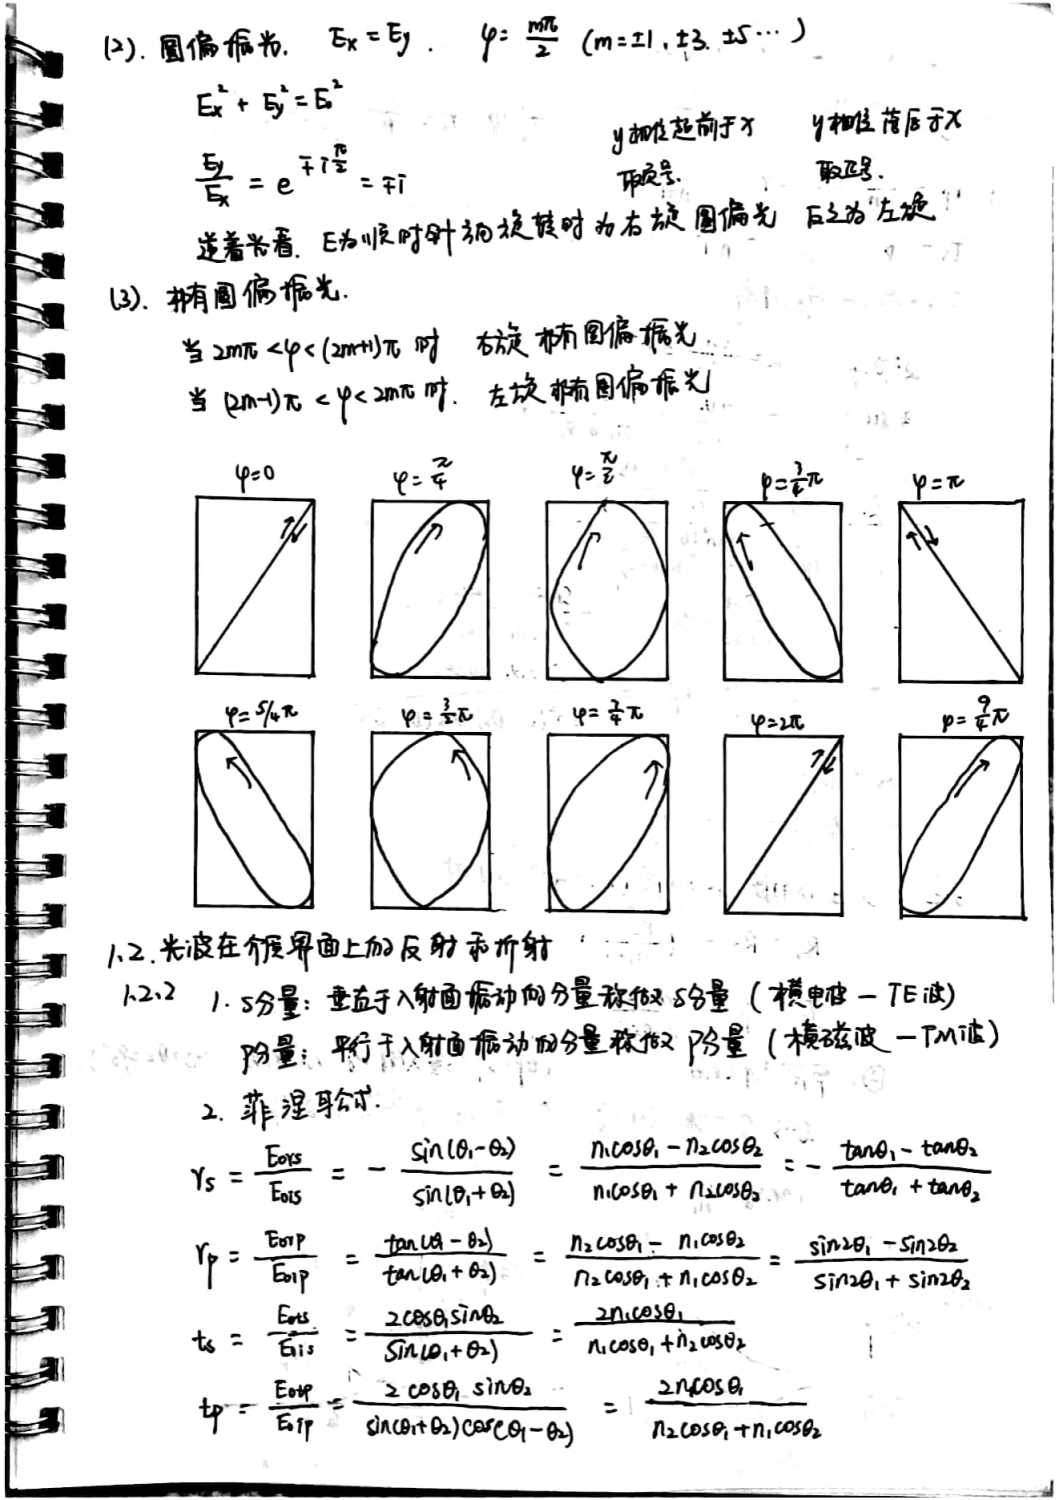 (2). 圆偏振光. Ex = Ey . φ = mπ/2 (m=±1, ±3, ±5…)
Ex² + Ey² = E₀²
y相位超前于x y相位落后于x
Ey/Ex = e^(∓i π/2) = ∓i 取负号. 取正号.
逆着光看. E为顺时针方向旋转时为右旋圆偏光 反之为左旋
(3). 椭圆偏振光.
当 2mπ < φ < (2m+1)π 时 右旋椭圆偏振光
当 (2m-1)π < φ < 2mπ 时. 左旋椭圆偏振光
φ=0 φ=π/4 φ=π/2 φ=3/4π φ=π
φ=5/4π φ=3/2π φ=7/4π φ=2π φ=9/4π
1.2. 光波在介质界面上的反射和折射
1.2.2 1. s分量: 垂直于入射面振动的分量称做s分量 (横电波 — TE波)
p分量: 平行于入射面振动的分量称做p分量 (横磁波 — TM波)
2. 菲涅耳公式.
rs = E0rs/E0is = - sin(θ₁-θ₂)/sin(θ₁+θ₂) = (n₁cosθ₁ - n₂cosθ₂)/(n₁cosθ₁ + n₂cosθ₂) = - (tanθ₁ - tanθ₂)/(tanθ₁ + tanθ₂)
rp = E0rp/E0ip = tan(θ₁-θ₂)/tan(θ₁+θ₂) = (n₂cosθ₁ - n₁cosθ₂)/(n₂cosθ₁ + n₁cosθ₂) = (sin2θ₁ - sin2θ₂)/(sin2θ₁ + sin2θ₂)
ts = E0ts/E0is = 2cosθ₁sinθ₂/sin(θ₁+θ₂) = 2n₁cosθ₁/(n₁cosθ₁+n₂cosθ₂)
tp = E0tp/E0ip = 2cosθ₁ sinθ₂/sin(θ₁+θ₂)cos(θ₁-θ₂) = 2n₁cosθ₁/(n₂cosθ₁+n₁cosθ₂)